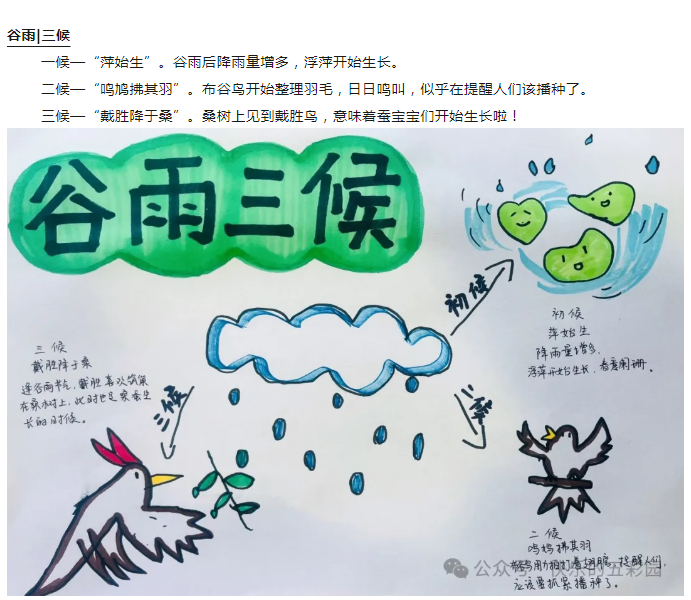 谷雨|三候
一候—“萍始生”。谷雨后降雨量增多，浮萍开始生长。
二候—“鸣鸠拂其羽”。布谷鸟开始整理羽毛，日日鸣叫，似乎在提醒人们该播种了。
三候—“戴胜降于桑”。桑树上见到戴胜鸟，意味着蚕宝宝们开始生长啦！
谷雨三候
初候
初候
萍始生
降雨量增多、
浮萍开始生长，春意阑珊。
三候
戴胜降于桑
逢谷雨节气，戴胜喜欢筑巢
在桑树上，此时也是蚕宝生
长的时候。
三候
二候
二候
鸣鸠拂其羽
用力拍打着翅膀，提醒人们，
应该要抓紧播种了。
公众号·快乐的五彩园